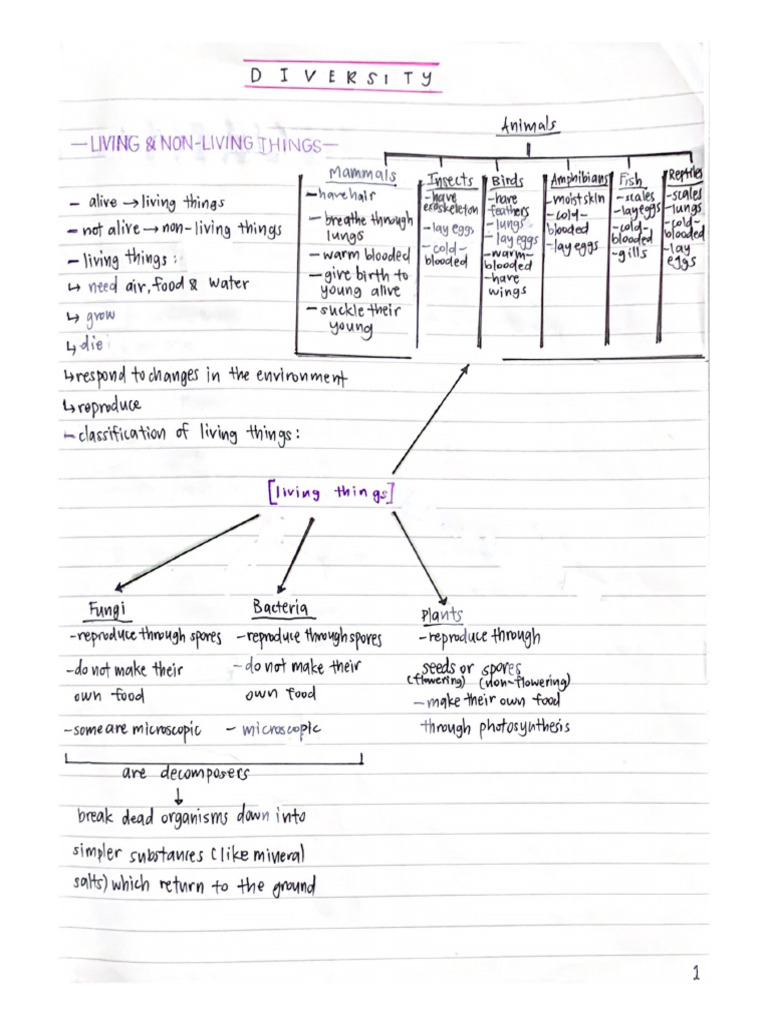 DIVERSITY
—LIVING & NON-LIVING THINGS—
- alive → living things
- not alive → non-living things
- living things:
↳ need air, food & water
↳ grow
↳ die
↳ respond to changes in the environment
↳ reproduce
- classification of living things:
Animals
Mammals
- have hair
- breathe through
lungs
- warm blooded
- give birth to
young alive
- suckle their
young
Insects
- have
exoskeleton
- lay eggs
- cold-
blooded
Birds
- have
feathers
- lungs
- lay eggs
- warm-
blooded
- have
wings
Amphibians
- moist skin
- cold-
blooded
- lay eggs
Fish
- scales
- lay eggs
- cold-
blooded
- gills
Reptiles
- scales
- lungs
- cold-
blooded
- lay
eggs
[living things]
Fungi
- reproduce through spores
- do not make their
own food
- some are microscopic
Bacteria
- reproduce through spores
- do not make their
own food
- microscopic
Plants
- reproduce through
seeds or spores
(flowering) (non-flowering)
- make their own food
through photosynthesis
are decomposers
↓
break dead organisms down into
simpler substances (like mineral
salts) which return to the ground
1